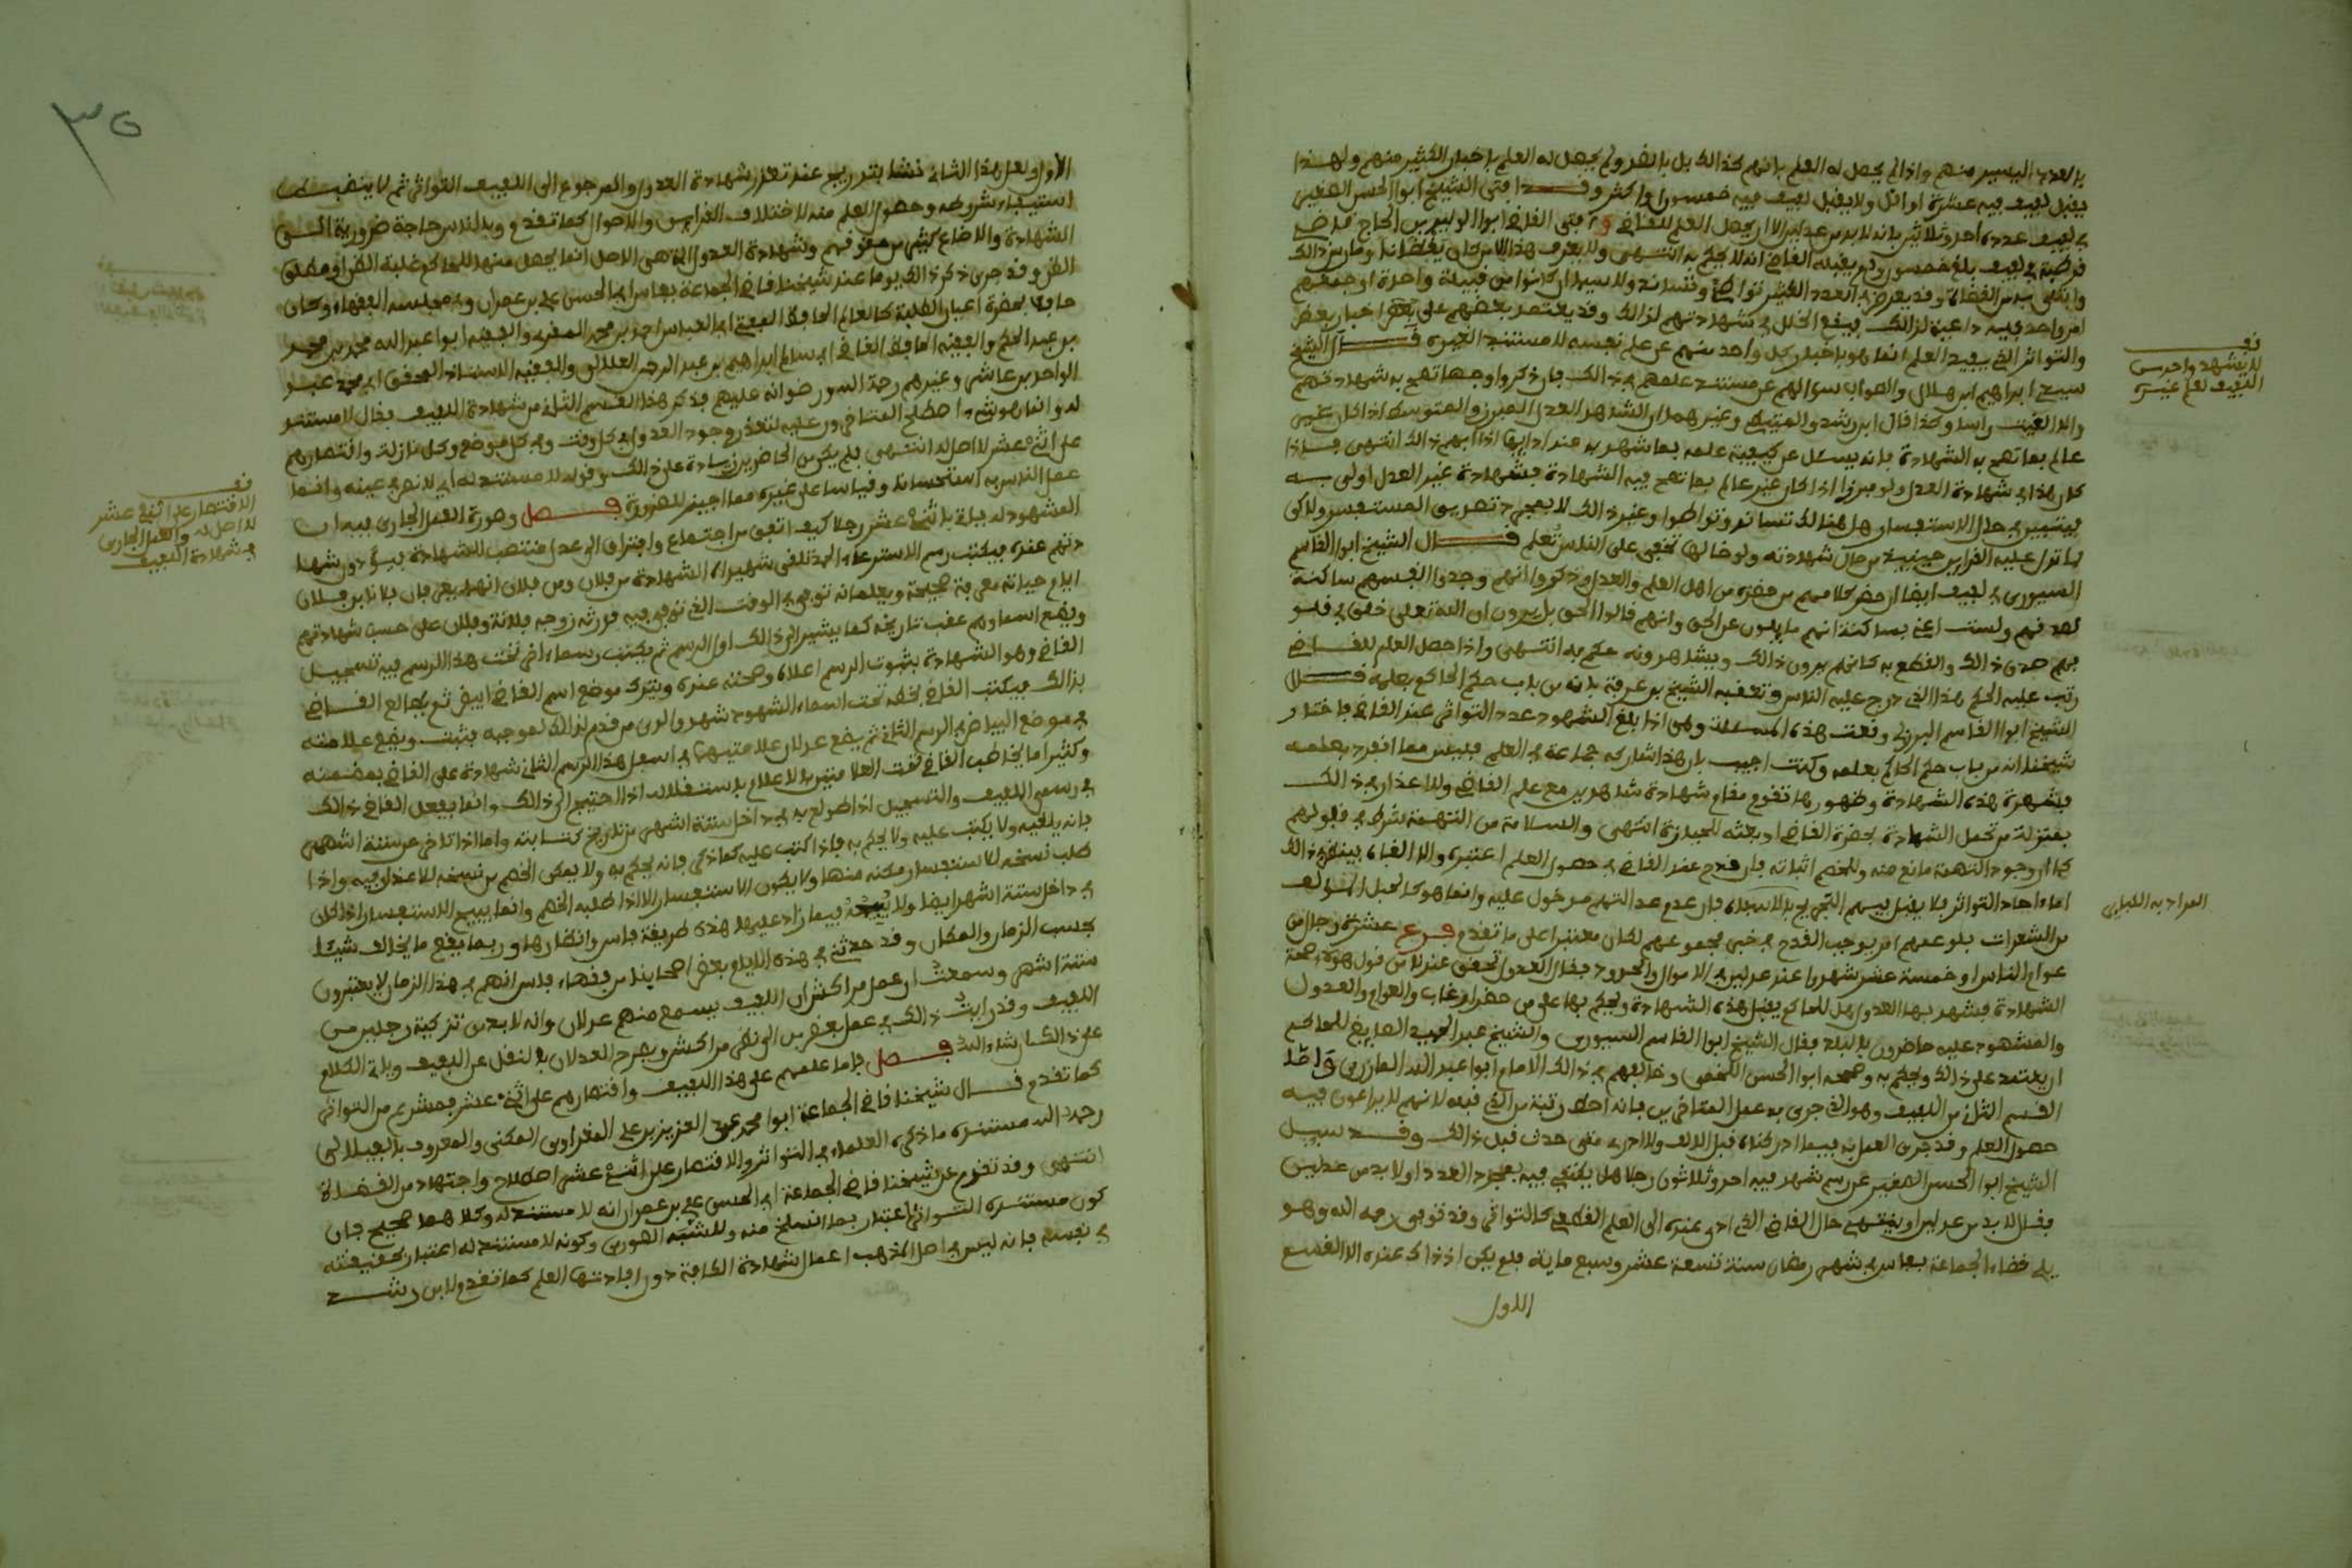 بالعدد اليسير منهم واذا لم يحصل له العلم بانهم كذالك بل بالفرد ولم يحصل له العلم باخبار الكثير منهم ولهذا
يقبل لفيف فيه عشرة او اقل ولا يقبل لفيف فيه خمسون او اكثر وقد افتى الشيخ ابو الحسن الصغير
في لفيف عدده احد وثلاثون بانه لا بد من عدلين الا ان يحصل العلم للقاضي وافتى القاضي ابو الوليد بن الحاج قاضي
قرطبة في لفيف بلغ خمسين ولم يقبله القاضي انه لا يحكم به انتهى
امر واحد فيه داعية لذالك فيقع الخلل في شهادتهم لذالك وقد يعتمد بعضهم على بعض اخبار بعض
والتواتر الذي يفيد العلم انما هو باخبار كل واحد منهم عن علم نفسه لا مستند لغيره قال الشيخ
سيدي ابراهيم ابن هلال والصواب سؤالهم عن مستند علمهم في ذالك فان ذكروا وجها تصح به شهادتهم
والا الغيت راسا وكذا قال ابن رشد والمتيطي وغيرهما ان الشاهد العدل المبرز والمتوسط اذا كان غير
عالم بما تصح به الشهادة فانه يسئل عن كيفية علمه بما شهد به عند ادائها اذا ابهم ذالك انتهى فاذا
كان هذا في شهادة العدل ولو مبرزا اذا كان غير عالم بما تصح فيه الشهادة فشهادة غير العدل اولى به
قال الشيخ ابو القاسم
السيوري في لفيف ايضا ان حضر كلامهم من حضره من اهل العلم والعدل وذكروا انهم وجدوا انفسهم ساكنة
لصدقهم ولست اعني بساكنة انهم مايلون عن الحق وانهم قالوا الحق بل يرون ان الله تعلى خلق في قلو
بهم صدق ذالك والقطع به كانهم يرون ذالك ويشاهدونه حكم به انتهى واذا حصل العلم للقاضي
رتب عليه الحكم هذا الذي درج عليه الناس وتعقبه الشيخ بن عرفة بانه من باب حكم الحاكم بعلمه قال
الشيخ ابو القاسم البرزلي وقعت هذه المسئلة وهي اذا بلغ الشهود عدد التواتر عند القاضي فاختار
شيخنا انه من باب حكم الحاكم بعلمه وكنت اجيب بان هذا شاركه جماعة في العلم فليس مما انفرد بعلمه
فشهرة هذه الشهادة وظهورها تقوم مقام شهادة شاهدين مع علم القاضي ولا اعذار في ذالك
بمنزلة من تحمل الشهادة بحضرة القاضي او بعثه للحيازة انتهى والسلامة من التهمة شرط في قبولهم
كما ان وجود التهمة مانع منه وللخصم اثباته فان قدح عند القاضي في حصول العلم اعتبره والا الغاه بينظر في ذالك
من الشعرات بلو عمهم امر يوجب القدح في خبر مجموعهم لكان معتبرا على ما تقدم فرع عشرة رجال من
عوام الناس او خمسة عشر شهدوا عند عدلين في الاموال والحدود فقال العدول تحقق عندنا من قول هؤلاء صحة
الشهادة فشهد بها العدول هل للحاكم يقبل هذه الشهادة ويحكم بها على من حضر او غاب والعوام والعدول
والمشهود عليه حاضرون بالبلد فقال الشيخ ابو القاسم السيوري والشيخ عبد الحميد الصايغ للحاكم
ان يعتمد على ذالك ويحكم به وصححه ابو الحسن اللخمي وخالفهم في ذالك الامام ابو عبد الله المازري واما
القسم الثاني من اللفيف وهو الذي جرى به عمل المتاخرين فانه احط رتبة من الذي قبله لانهم لا يراعون فيه
حصول العلم وقد جرى العمل به فيما ادركناه قبل الالف ولا ادري متى حدث قبل ذالك وقد سيل
الشيخ ابو الحسن الصغير عن رسم شهد فيه احد وثلاثون رجلا هل يكتفى فيه بمجرد العدد او لا بد من عدلين
فقال لا بد من عدلين او ينتهي حال القاضي الذي ادي عنده الى العلم القطعي كالتواتر وقد توفي رحمه الله وهو
يلي قضاء الجماعة بفاس في شهر رمضان سنة تسعة عشر وسبع ماية فلم يكن اذ ذاك عنده الا القسم
الاول
قف
لا يشهد واحد من
اللفيف بعلم غيره
المراد به اللباس
الاول ولعل هذا الثاني نشا بتدريج عند تعذر شهادة العدول والمرجوع الى اللفيف التواتري ثم لا ينضبط
استيفاء شروطه وحصول العلم منه لاختلاف القراين والاحوال كما تقدم وبالناس حاجة ضرورية الى
الشهادة والا ضاع كثير من حقوقهم وشهادة العدول التي هي الاصل انما يحصل منها للحاكم غلبة الظن او مطلق
الظن وقد جرى ذكر ذالك يوما عند شيخنا قاضي الجماعة بفاس ابي الحسن علي بن عمران وفي مجلسه الفقهاء وكان
حافلا بحضرة اعيان الطلبة كالعالم الحافظ المفتي ابي العباس احمد بن محمد المقري والفقيه ابو عبد الله محمد بن محمد
بن عبد الحكم والفقيه الحافظ القاضي ابي سالم ابراهيم بن عبد الرحمن الجلالي والفقيه الاستاذ المحقق ابي محمد عبد
الواحد بن عاشر وغيرهم رحمة الله ورضوانه عليهم فذكر هذا القسم الثاني من شهادة اللفيف فقال لا مستند
له وانما هو شيء اصطلح المتاخرون عليه لتعذر وجود العدول في كل وقت وفي كل موضع وكل نازلة واقتصارهم
على اثني عشر لا اصل له انتهى فلم يكن من الحاضرين زيادة على ذالك وقوله لا مستند له اي لا نص في عينه وانما
عمل الناس به استحسانا وقياسا على غيره مما اجيز للضرورة فصل وصورة العمل الجاري فيه ان
المشهود له ياتي باثني عشر رجلا كيف اتفق من اجتماع وافتراق الى عدل منتصب للشهادة فيؤدون شهاد
تهم عنده فيكتب رسم الاسترعاء
ايام حياته معرفة صحيحة ويعلمانه توفي في الوقت الذي توفي فيه فورثه زوجه فلانة وفلان على حسب شهادتهم
ويضع اسماءهم عقب تاريخه كما يشير الى ذالك اول الرسم ثم يكتب رسما اخر تحت هذا الرسم فيه تسجيل
القاضي وهو الشهادة بثبوت الرسم اعلاه وصحته عنده ويترك موضع اسم القاضي ابيض ثم يطالع القاضي
بذالك فيكتب القاضي بخطه تحت اسماء الشهود شهدوا لدى من قدم لذالك لموجبه فثبت ويضع علامته
في موضع البياض في الرسم الثاني ثم يضع عدلان علامتيهما في اسفل هذا الرسم الثاني شهادة على القاضي بمضمنه
وكثيرا ما يخاطب القاضي تحت العلامتين بالاعلام باستقلاله اذا احتيج الى ذالك وانما يفعل القاضي ذالك
في رسمي اللفيف والتسجيل اذا طولع به في داخل ستة اشهر من تاريخ كتابته واما اذا تاخر عن ستة اشهر
فانه يلغيه ولا يكتب عليه ولا يحكم به فاذا كتب عليه كما ذكر فانه يحكم به ولا يمكن الخصم من نسخه للاعذار فيه واذا
طلب نسخه للاستفسار مكنه منها ولا يكون الاستفسار الا اذا طلبه الخصم وانما يبيح الاستفسار اذا كان
في داخل ستة اشهر ايضا ولا يبيحه فيما زاد عليها هذه طريقة فاس وانظارها وربما يقع ما يخالف شيئا
بحسب الزمان والمكان وقد حدثني في هذه الايام بعض اصحابنا من فقهاء فاس انهم في هذا الزمان لا يعتبرون
ستة اشهر وسمعت ان عمل مراكش ان اللفيف يسمع منهم عدلان وانه لا بد من تزكية رجلين من
اللفيف وقد رايت ذالك في عمل بعض من الى نظر مراكش ويصرح العدلان بالنقل عن اللفيف وياتي الكلام
على ذالك ان شاء الله فصل فاما عملهم على هذا اللفيف واقتصارهم على اثني عشر فمشربه من التواتر
كما تقدم قال شيخنا قاضي الجماعة ابو محمد عبد العزيز بن علي المغراوي المكنى والمعروف بالفيلالي
رحمه الله مستنده ما ذكره العلماء في التواتر والاقتصار على اثني عشر اصطلاح واجتهاد من القضاة
انتهى وقد تقدم عن شيخنا قاضي الجماعة ابي الحسن علي بن عمران انه لا مستند له وكلاهما صحيح فان
كون مستنده التواتر اعتبار بما انسلخ منه وللشبه الصوري وكونه لا مستند له اعتبار بحقيقته
في نفسه فانه ليس في اصل المذهب اعمال شهادة الكافة دون افادتها العلم كما تقدم لابن رشد
قف
الاقتصار على اثني عشر
لا اصل له والعمل الجاري
في شهادة اللفيف
٣٥